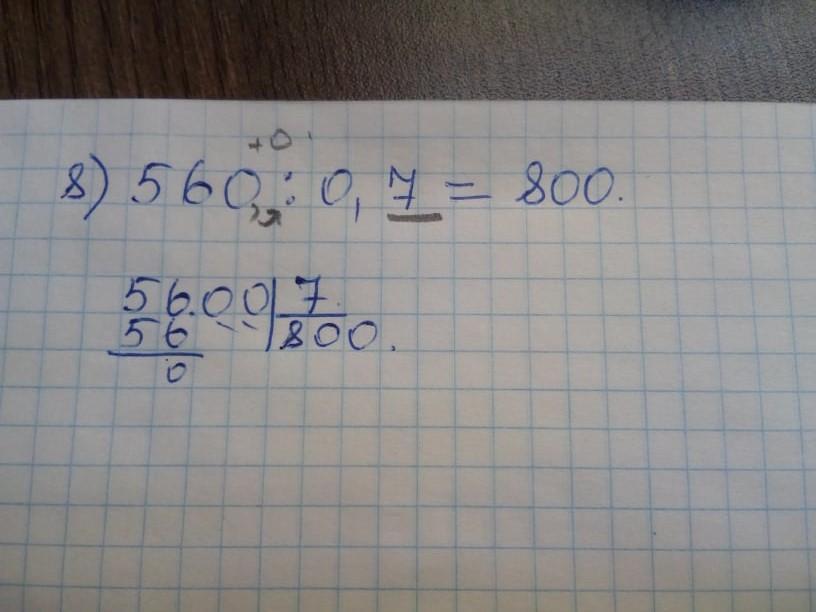 +0
8) 560, : 0,7 = 800.
5600 | 7
56 | 800.
0